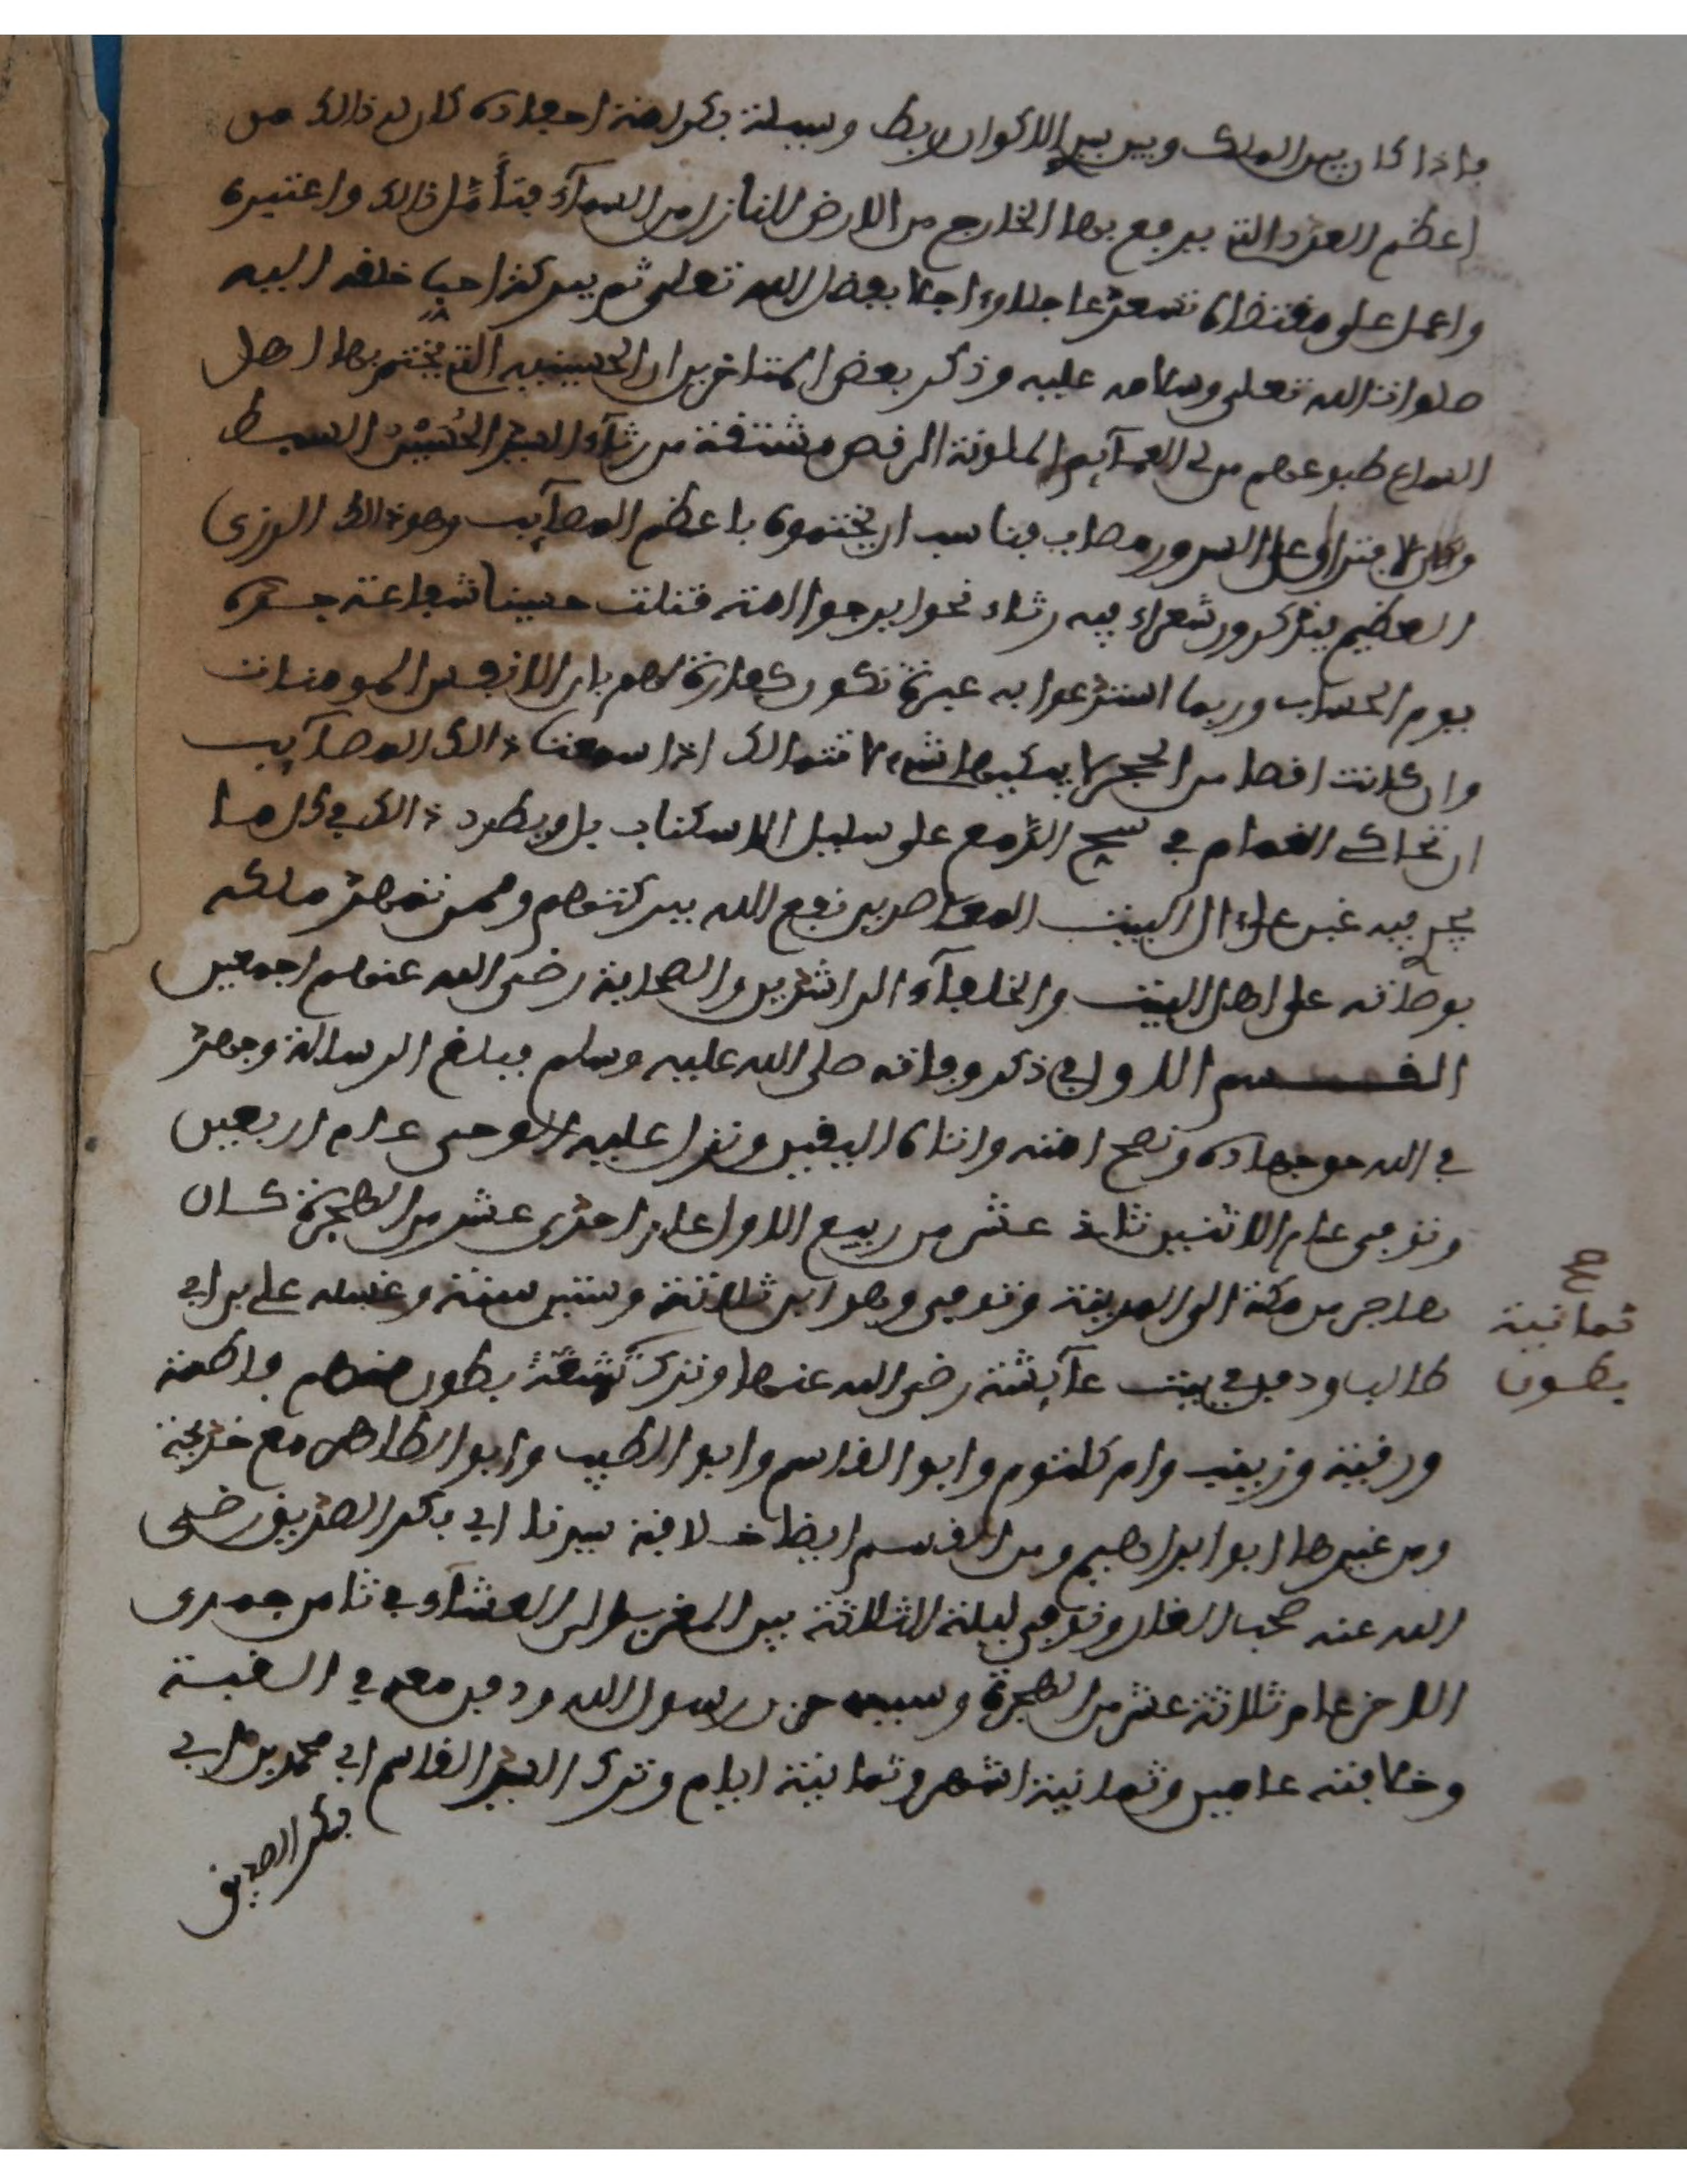 فاذا كان بين الملك وبين بين الاكوان ربط وسيلة بكرامة اجداده كان له ذالك من
اعظم العدد التي يرفع بها الخارج من الارض للنازل من السماء فتأمل ذالك واعتبره
واعمل على مقتضاه تسعد عاجلا وءاجلا بفضل الله تعلى ثم ببركة احب خلقه اليه
صلوات الله تعلى وسلامه عليه وذكر بعض المتاخرين ان الحسينية التي يختم بها اهل
السماع طبوعهم من لي العمآيم الملونة الرقص مشتقة من رثآء السيد الحسين السبط
وكان لا بتراوى على السرور مصاب فناسب ان يختموه باعظم المصآيب وهو ذالك الرزى
العظيم فيذكرون شعراء فيه رثاء نحو ايرجوا امة قتلت حسينا شفاعة جده
يوم الحساب وربما استدعوا به عبرة تكون كفارة لهم بان الانفس المومنات
وان كانت افضا من الحجر لا يبكيها شيء لا تتمالك اذا سمعت ذالك المصآيب
ان تحاكي الغمام في سح الدمع على سبيل الاسكتاب بل ويطرد ذالك في كل ما
يجي فيه غير علىءال البيت المعاصرين نفع الله ببركتهم وممن تمهد ملكه
بوطاته على اهل البيت والخلفآء الراشدين والصحابة رضي الله عنهم اجمعين
القسم الاول في ذكر وفاته صلى الله عليه وسلم فبلغ الرسالة وجهد
في الله حق جهاده ونصح امته واتاه اليقين ونزل عليه الوحي عام اربعين
وتوفي عام الاثنين ثاني عشر من ربيع الاول عام احدى عشر من الهجرة كان
هاجر من مكة الى المدينة وتوفي وهو ابن ثلاثة وستين سنة وغسله علي بن ابي
طالب ودفن في بيت عآيشة رضي الله عنها وترك تسعة بطون منهم فاطمة
ثمانية
بطون
ورقية وزينب وام كلثوم وابو القاسم وابو الطيب وابو الطاهر مع خديجة
ومن غيرها ابو ابراهيم ومن القسم ايضا خلافة سيدنا ابي بكر الصديق رضي
الله عنه صحب الغار وتوفي ليلة الثلاثة بين المغرب الى العشاء في ثامن جمدى
الاخر عام ثلاثة عشر من الهجرة وسببه حزن رسول الله ودفن معه في القبة
وخلافته عامين وثمانية اشهر وثمانية ايام وترك السيد القاسم ابي محمد بن ابي
بكر الصديق